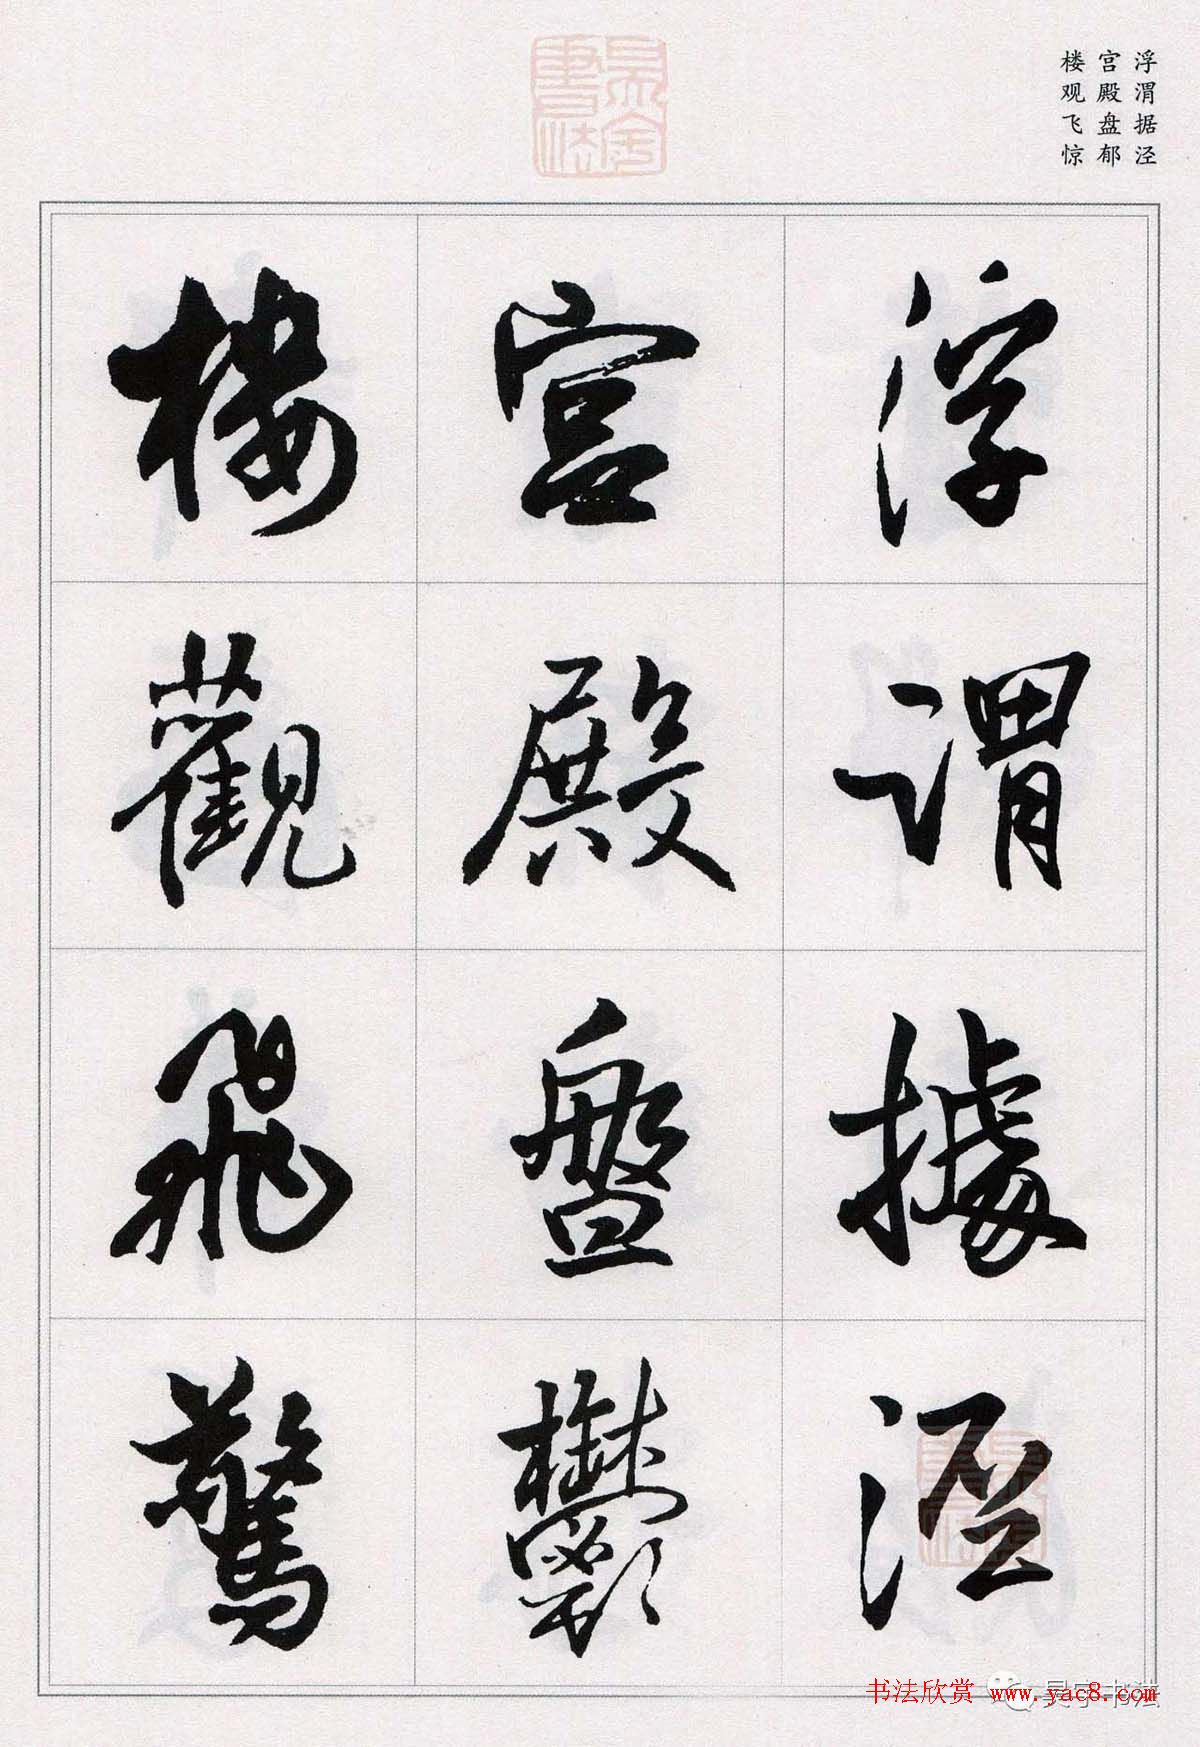 浮渭据泾
宫殿盘郁
楼观飞惊
浮謂據涇
宫殿盤鬱
樓觀飛驚
书法欣赏 www.yac8.com